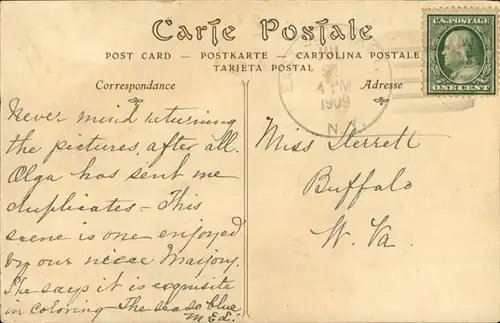 Carte Postale
POST CARD — POSTKARTE — CARTOLINA POSTALE
TARJETA POSTAL
Correspondance
Adresse
U.S. POSTAGE
ONE CENT
4 PM
1909
N.Y.
Never mind returning
the pictures, after all.
Olga has sent me
duplicates – This
scene is one enjoyed
by our niece Marjory.
She says it is exquisite
in coloring The sea so blue.
Miss Sterrett
Buffalo
W. Va.